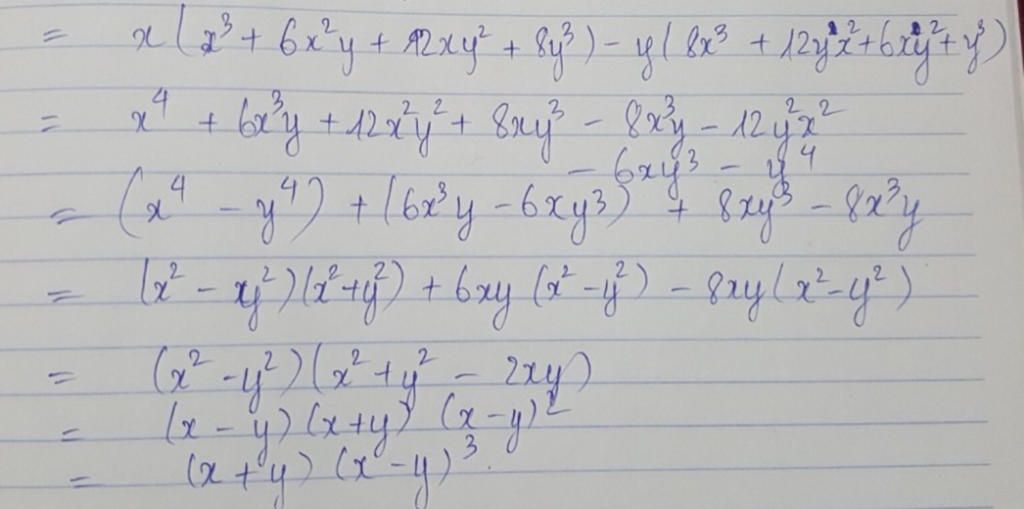 = x(x³ + 6x²y + 12xy² + 8y³) - y(8x³ + 12yx² + 6xy² + y³)
= x⁴ + 6x³y + 12x²y² + 8xy³ - 8x³y - 12y²x²
- 6xy³ - y⁴
= (x⁴ - y⁴) + (6x³y - 6xy³) + 8xy³ - 8x³y
= (x² - xy²)(x² + y²) + 6xy(x² - y²) - 8xy(x² - y²)
= (x² - y²)(x² + y² - 2xy)
= (x - y)(x + y)(x - y)²
= (x + y)(x - y)³.